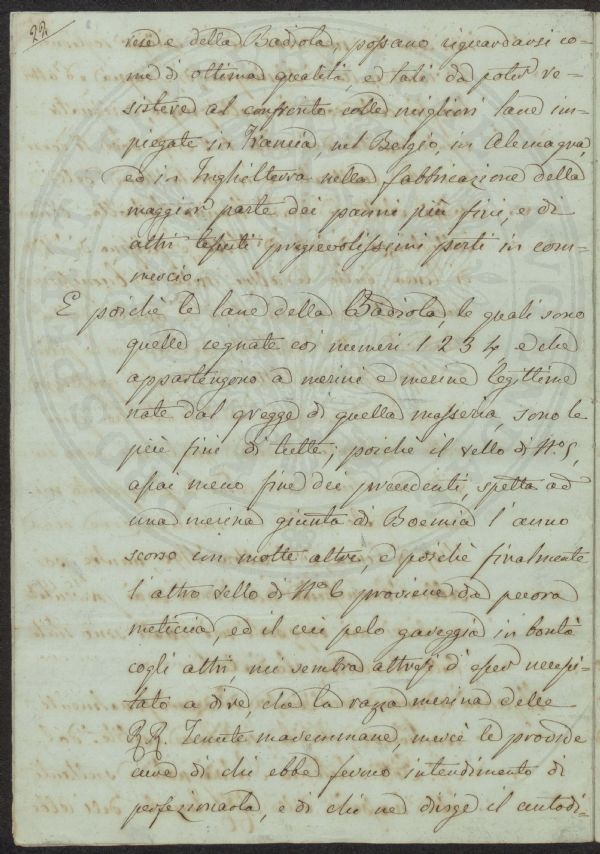 22
rese e della Badiola possano riguardarsi co=
me di ottima qualità, ed tali da poter re=
sistere al confronto colle migliori lane im=
piegate in Francia, nel Belgio, in Alemagna,
ed in Inghilterra nella fabbricazione della
maggior parte dei panni più fini e di
altri tessuti pregievolissimi posti in com=
mercio.
E poichè le lane della Badiola, le quali sono
quelle segnate coi numeri 1 2 3 4 e che
appartengono a merini e merine legittime
nate dal gregge di quella masseria, sono le
più fini di tutte; poichè il vello di N.o 5,
assai meno fine dei precedenti, spetta ad
una merina giunta di Boemia l'anno
scorso con molte altre, e poichè finalmente
l'altro vello di N.o 6 proviene da pecora
meticcia, ed il cui pelo gareggia in bontà
cogli altri, mi sembra altresì d'esser necessi=
tato a dire, che la razza merina delle
RR. Tenute maremmane, mercè le provide
cure di chi ebbe fermo intendimento di
perfezionarla, e di chi ne dirige il custodi=